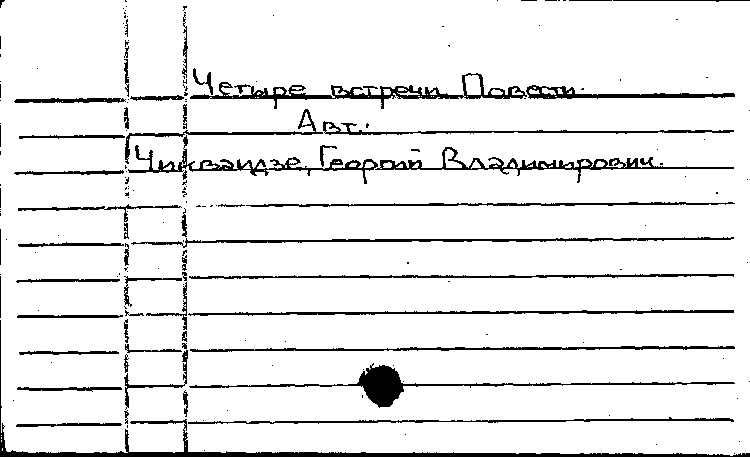 Четыре встречи Повести.
Авт.:
Чикваидзе, Георгий Владимирович.